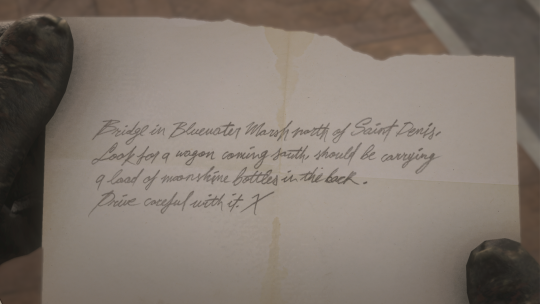 Bridge in Bluewater Marsh north of Saint Denis.
Look for a wagon coming south should be carrying
a load of moonshine bottles in the back.
Drive careful with it. X